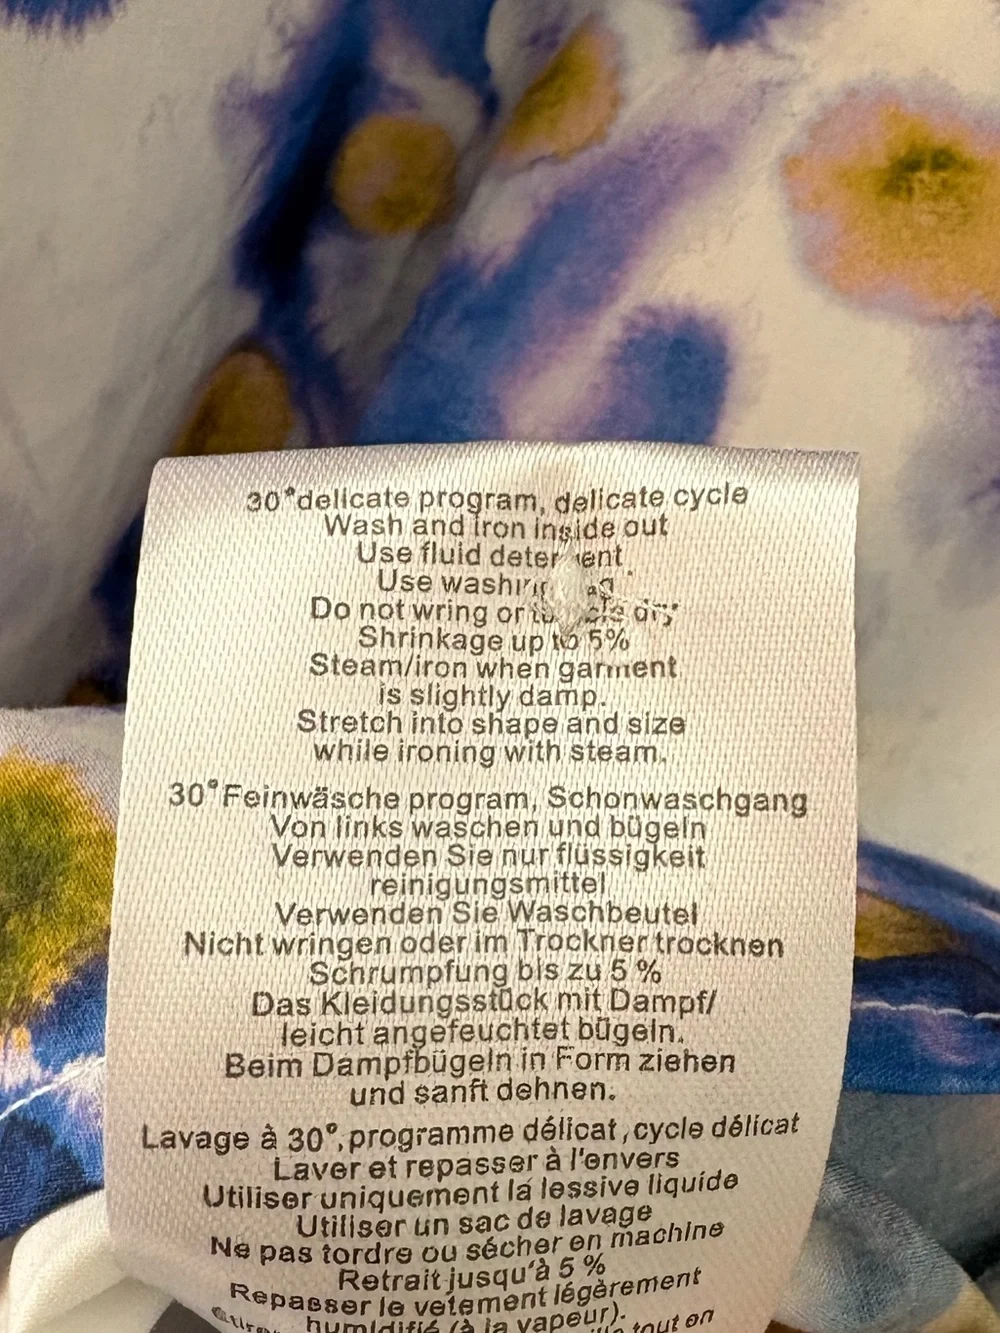 30°delicate program, delicate cycle
Wash and iron inside out
Use fluid detergent
Use washing bag.
Do not wring or tumble dry
Shrinkage up to 5%
Steam/iron when garment
is slightly damp.
Stretch into shape and size
while ironing with steam.
30°Feinwäsche program, Schonwaschgang
Von links waschen und bügeln
Verwenden Sie nur flüssigkeit
reinigungsmittel
Verwenden Sie Waschbeutel
Nicht wringen oder im Trockner trocknen
Schrumpfung bis zu 5 %
Das Kleidungsstück mit Dampf/
leicht angefeuchtet bügeln.
Beim Dampfbügeln in Form ziehen
und sanft dehnen.
Lavage à 30°, programme délicat, cycle délicat
Laver et repasser à l'envers
Utiliser uniquement la lessive liquide
Utiliser un sac de lavage
Ne pas tordre ou sécher en machine
Retrait jusqu'à 5 %
Repasser le vetement légèrement
humidifié (à la vapeur).
tout en